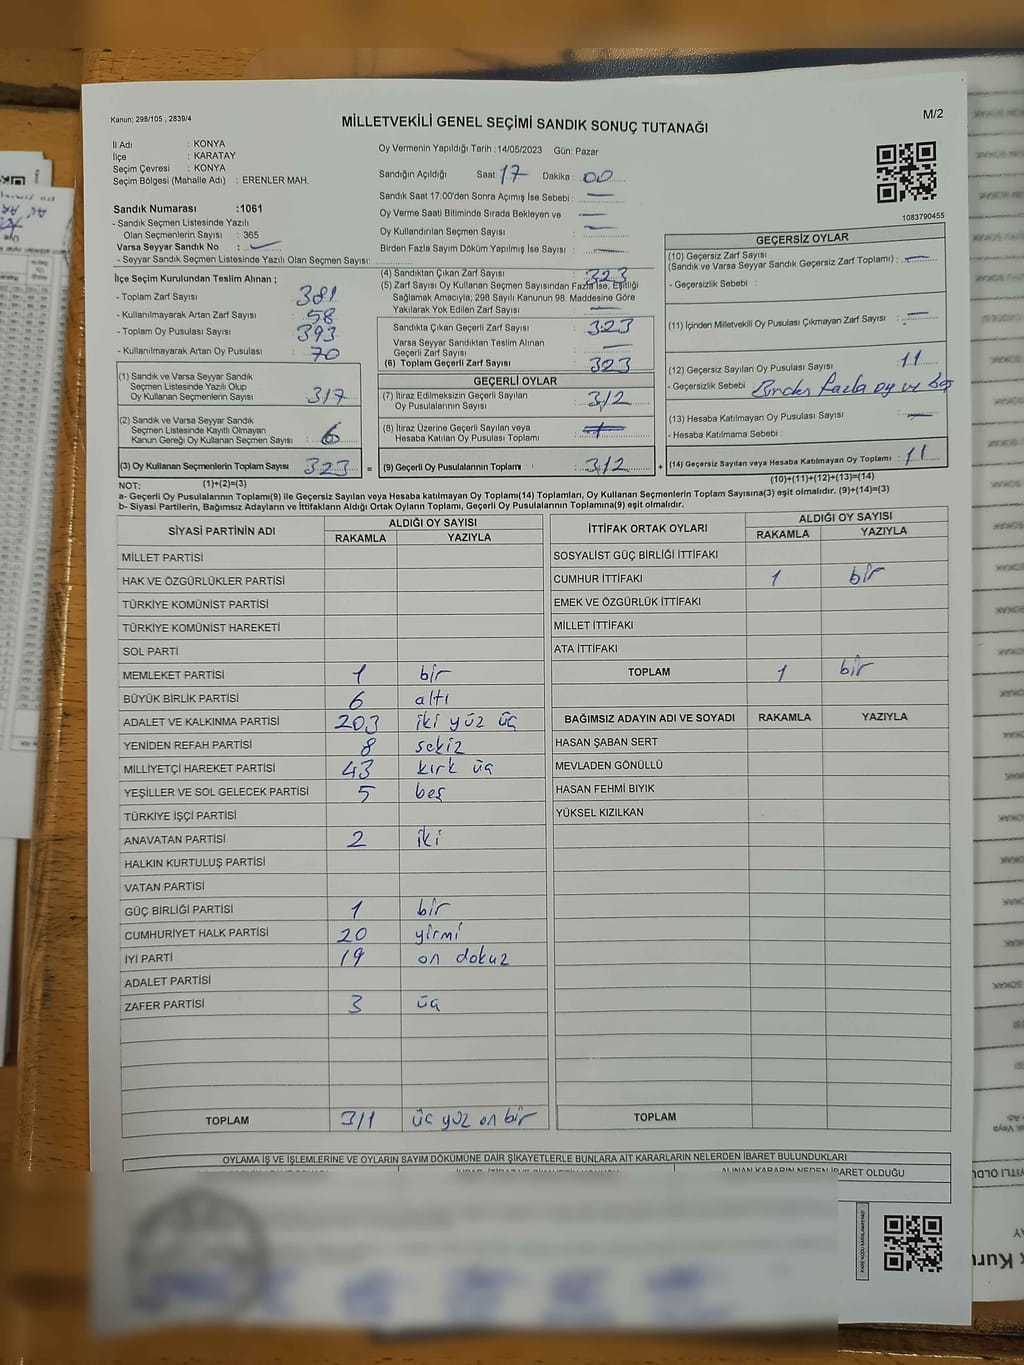 Kanun; 298/105 , 2839/4
MİLLETVEKİLİ GENEL SEÇİMİ SANDIK SONUÇ TUTANAĞI
M/2
İl Adı : KONYA
İlçe : KARATAY
Seçim Çevresi : KONYA
Seçim Bölgesi (Mahalle Adı) : ERENLER MAH.
Oy Vermenin Yapıldığı Tarih :14/05/2023 Gün: Pazar
Sandığın Açıldığı Saat: 17 Dakika : 00
Sandık Saat 17:00'den Sonra Açımış İse Sebebi : —
Oy Verme Saati Bitiminde Sırada Bekleyen ve
Oy Kullandırılan Seçmen Sayısı : —
Birden Fazla Sayım Döküm Yapılmış İse Sayısı : —
1083790455
Sandık Numarası :1061
- Sandık Seçmen Listesinde Yazılı
Olan Seçmenlerin Sayısı : 365
Varsa Seyyar Sandık No :
- Seyyar Sandık Seçmen Listesinde Yazılı Olan Seçmen Sayısı:
İlçe Seçim Kurulundan Teslim Alınan ;
- Toplam Zarf Sayısı : 381
- Kullanılmayarak Artan Zarf Sayısı : 58
- Toplam Oy Pusulası Sayısı : 393
- Kullanılmayarak Artan Oy Pusulası : 70
(1) Sandık ve Varsa Seyyar Sandık
Seçmen Listesinde Yazılı Olup
Oy Kullanan Seçmenlerin Sayısı : 317
(2) Sandık ve Varsa Seyyar Sandık
Seçmen Listesinde Kayıtlı Olmayan
Kanun Gereği Oy Kullanan Seçmen Sayısı : 6
(3) Oy Kullanan Seçmenlerin Toplam Sayısı : 323 =
(4) Sandıktan Çıkan Zarf Sayısı : 323
(5) Zarf Sayısı Oy Kullanan Seçmen Sayısından Fazla İse, Eşitliği
Sağlamak Amacıyla; 298 Sayılı Kanunun 98. Maddesine Göre
Yakılarak Yok Edilen Zarf Sayısı : —
Sandıkta Çıkan Geçerli Zarf Sayısı : 323
Varsa Seyyar Sandıktan Teslim Alınan
Geçerli Zarf Sayısı : —
(6) Toplam Geçerli Zarf Sayısı : 323
GEÇERLİ OYLAR
(7) İtiraz Edilmeksizin Geçerli Sayılan
Oy Pusulalarının Sayısı : 312
(8) İtiraz Üzerine Geçerli Sayılan veya
Hesaba Katılan Oy Pusulası Toplamı :
(9) Geçerli Oy Pusulalarının Toplamı : 312 +
GEÇERSİZ OYLAR
(10) Geçersiz Zarf Sayısı
(Sandık ve Varsa Seyyar Sandık Geçersiz Zarf Toplamı) : —
- Geçersizlik Sebebi :
(11) İçinden Milletvekili Oy Pusulası Çıkmayan Zarf Sayısı : —
(12) Geçersiz Sayılan Oy Pusulası Sayısı : 11
- Geçersizlik Sebebi : Birden fazla oy ve boş
(13) Hesaba Katılmayan Oy Pusulası Sayısı : —
- Hesaba Katılmama Sebebi :
(14) Geçersiz Sayılan veya Hesaba Katılmayan Oy Toplamı : 11
NOT: (1)+(2)=(3)
(10)+(11)+(12)+(13)=(14)
a- Geçerli Oy Pusulalarının Toplamı(9) ile Geçersiz Sayılan veya Hesaba katılmayan Oy Toplamı(14) Toplamları, Oy Kullanan Seçmenlerin Toplam Sayısına(3) eşit olmalıdır. (9)+(14)=(3)
b- Siyasi Partilerin, Bağımsız Adayların ve İttifakların Aldığı Ortak Oyların Toplamı, Geçerli Oy Pusulalarının Toplamına(9) eşit olmalıdır.
SİYASİ PARTİNİN ADI ALDIĞI OY SAYISI
RAKAMLA YAZIYLA
MİLLET PARTİSİ
HAK VE ÖZGÜRLÜKLER PARTİSİ
TÜRKİYE KOMÜNİST PARTİSİ
TÜRKİYE KOMÜNİST HAREKETİ
SOL PARTİ
MEMLEKET PARTİSİ 1 bir
BÜYÜK BİRLİK PARTİSİ 6 altı
ADALET VE KALKINMA PARTİSİ 203 iki yüz üç
YENİDEN REFAH PARTİSİ 8 sekiz
MİLLİYETÇİ HAREKET PARTİSİ 43 kırk üç
YEŞİLLER VE SOL GELECEK PARTİSİ 5 beş
TÜRKİYE İŞÇİ PARTİSİ
ANAVATAN PARTİSİ 2 iki
HALKIN KURTULUŞ PARTİSİ
VATAN PARTİSİ
GÜÇ BİRLİĞİ PARTİSİ 1 bir
CUMHURİYET HALK PARTİSİ 20 yirmi
İYİ PARTİ 19 on dokuz
ADALET PARTİSİ
ZAFER PARTİSİ 3 üç
TOPLAM 311 üç yüz on bir
İTTİFAK ORTAK OYLARI ALDIĞI OY SAYISI
RAKAMLA YAZIYLA
SOSYALİST GÜÇ BİRLİĞİ İTTİFAKI
CUMHUR İTTİFAKI 1 bir
EMEK VE ÖZGÜRLÜK İTTİFAKI
MİLLET İTTİFAKI
ATA İTTİFAKI
TOPLAM 1 bir
BAĞIMSIZ ADAYIN ADI VE SOYADI RAKAMLA YAZIYLA
HASAN ŞABAN SERT
MEVLADEN GÖNÜLLÜ
HASAN FEHMİ BIYIK
YÜKSEL KIZILKAN
TOPLAM
OYLAMA İŞ VE İŞLEMLERİNE VE OYLARIN SAYIM DÖKÜMÜNE DAİR ŞİKAYETLERLE BUNLARA AİT KARARLARIN NELERDEN İBARET BULUNDUKLARI
ALINAN KARARIN NEDEN İBARET OLDUĞU